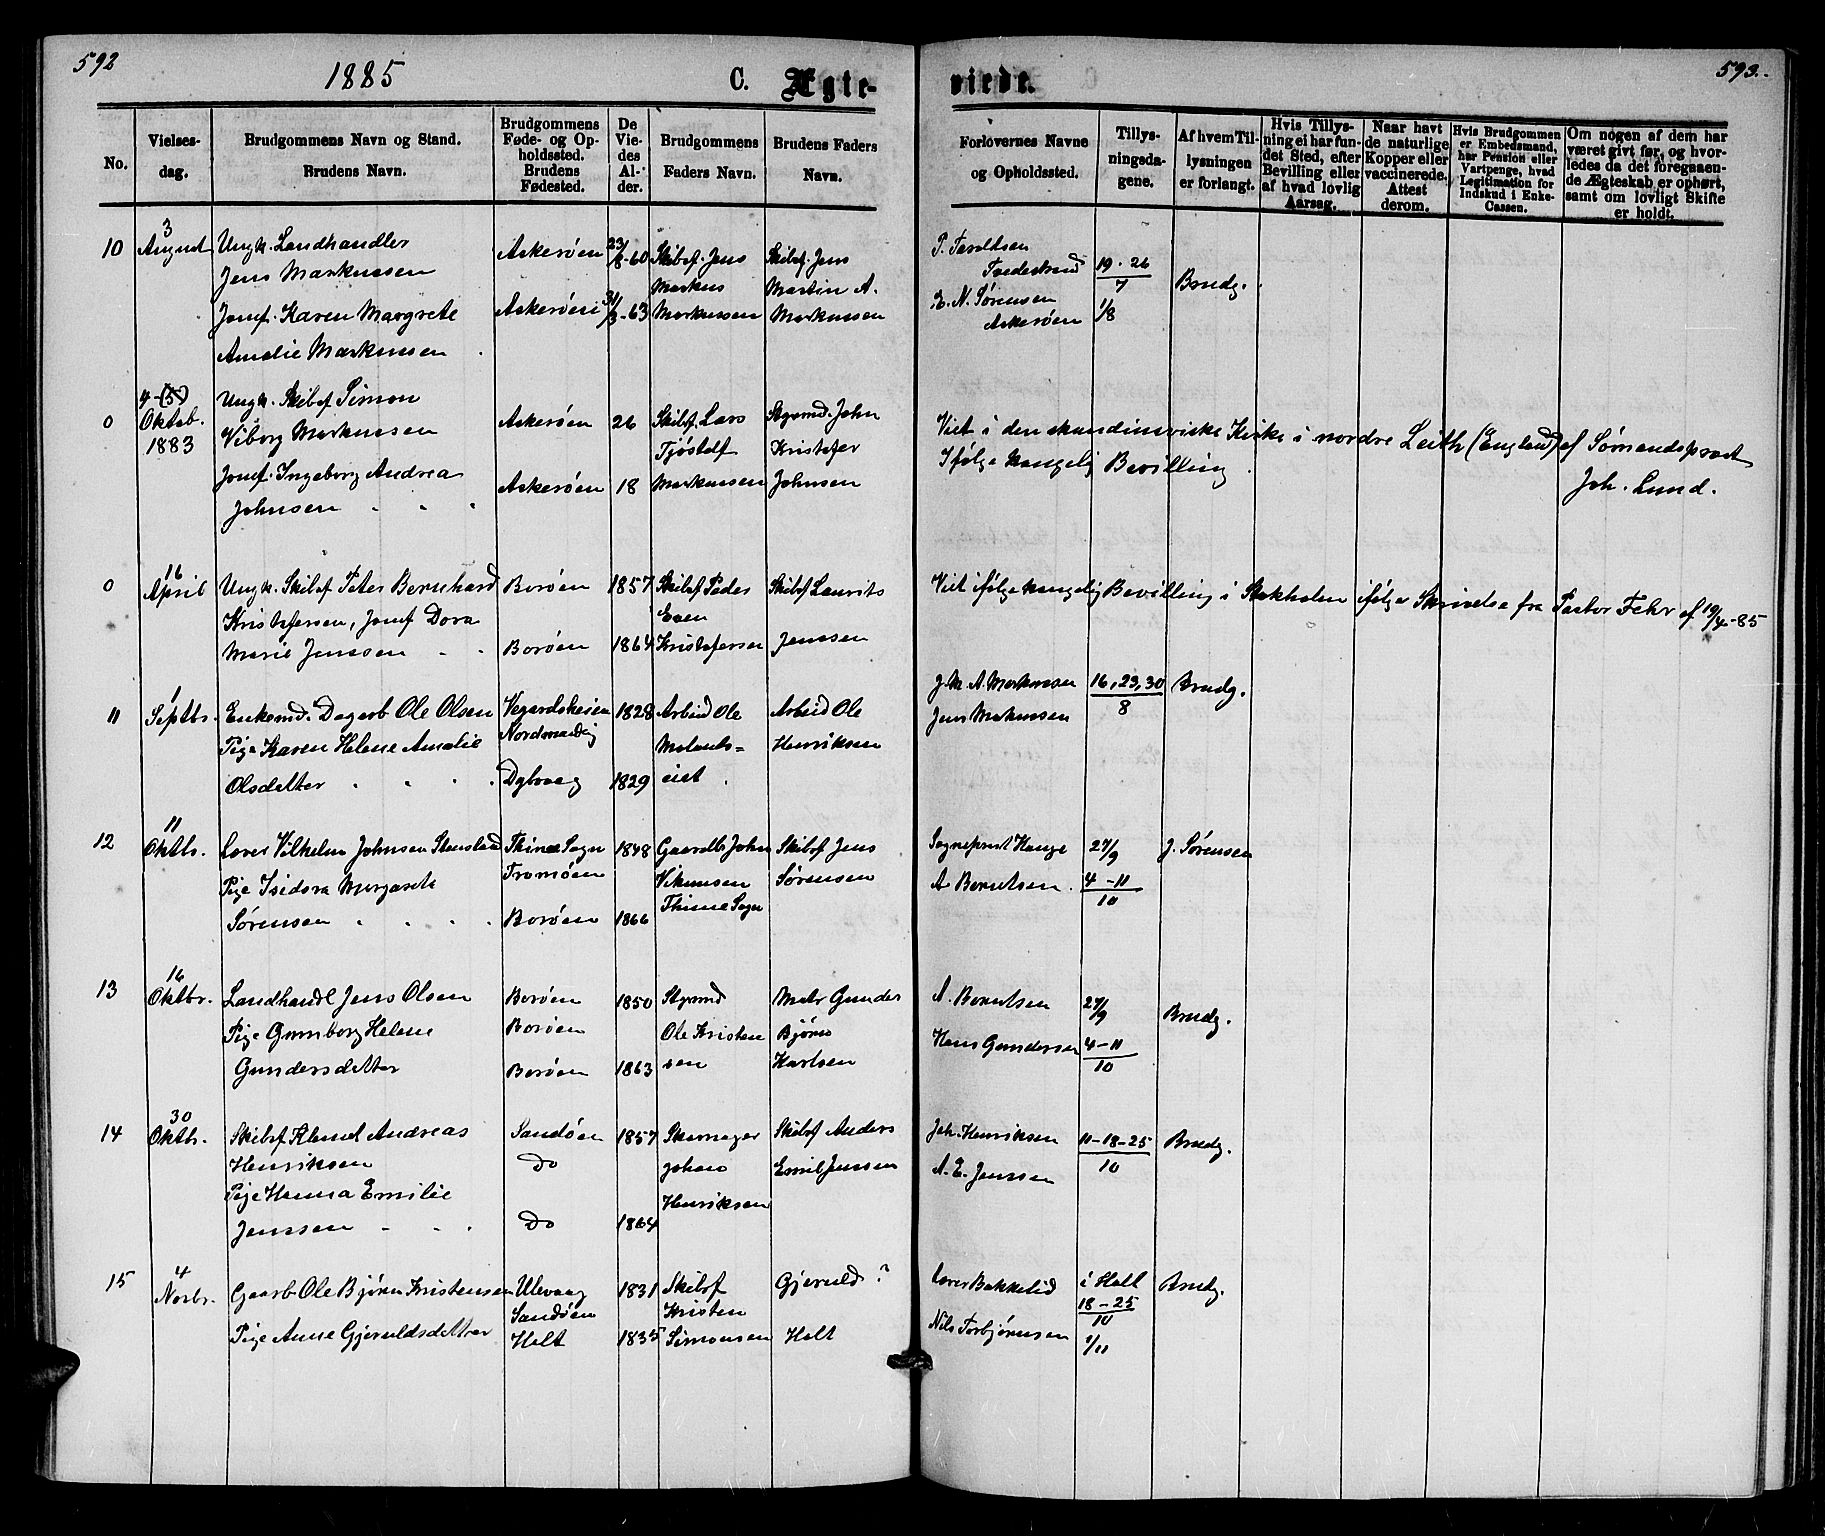 592
1885
C. Ægte-
viede.
593.
No.
Vielses-
dag.
Brudgommens Navn og Stand.
Brudens Navn.
Brudgommens
Føde- og Op-
holdssted.
Brudens
Fødested.
De
Vie-
des
Al-
der.
Brudgommens
Faders Navn.
Brudens Faders
Navn.
Forlovernes Navne
og Opholdssted.
Tillys-
ningsda-
gene.
Af hvem Til-
lysningen
er forlangt.
Hvis Tillys-
ning ei har fun-
det Sted, efter
Bevilling eller
af hvad lovlig
Aarsag.
Naar havt
de naturlige
Kopper eller
vaccinerede.
Attest
derom.
Hvis Brudgommen
er Embedsmand,
har Pension eller
Vartpenge, hvad
Legitimation for
Indskud i Enke-
Cassen.
Om nogen af dem har
været givt før, og hvor-
ledes da det foregaaen-
de Ægteskab er ophørt,
samt om lovligt Skifte
er holdt.
10
3
August
Ungk. Landhandler
Jens Markussen
Jomf. Karen Margrete
Amalie Markussen
Askerøen
Askerøen
23/8-60
31/3-63
Skibsf. Jens
Markus
Markussen
Skibsf. Jens
Martin A.
Markussen
P. Taraldsen
Tvedestrand
E. N. Sørensen
Askerøen
19. 26
7
1/8
Brudg.
0
4-(5)
Oktob.
1883
Ungk. Skibsf Simon
Viborg Markussen
Jomf. Ingeborg Andrea
Johnsen
Askerøen
Askerøen
26
18
Skibsf. Lars
Tjøstolf
Markussen
Styrmd. John
Kristofer
Johnsen
Viet i den skandinaviske Kirke i nordre Leith (England) af Sømandsprest
Ifølge Kongelig Bevilling
Joh. Lund.
0
16
April
Ungk. Skibsf Peter Bernhard
Kristofersen, Jomf Dora
Marie Jenssen
Borøen
Borøen
1857
1864
Skibsf Peder
Even
Kristofersen
Skibsf Laurits
Jenssen
Viet ifølge kongelig Bevilling i Stokholm ifølge Skrivelse fra Pastor Fehr af 19/4-85
11
1
Septbr.
Enkemd. Dagarb Ole Olsen
Pige Karen Helene Amalie
Olsdatter
Vegardsheien
Dybvaag
1828
1829
Arbeid Ole
Molands-
eiet
Arbeid Ole
Henriksen
J. M. A. Markussen
Jens Markussen
16, 23, 30
8
Brudg.
12
11
Oktbr.
Lærer Vilhelm Johnsen
Pige Isidora Margareta
Sørensen
Thime Sogn
Tromøen
Borøen
1848
1866
Gaardb John
Thime Sogn
Skibsf Jens
Sørensen
Sogneprest Hauge
A. Berntsen.
27/9
4-11
10
J. Sørensen
13
16
Oktbr.
Landhandl Jens Olsen
Pige Gunborg Helene
Gundersdatter
Borøen
Borøen
Borøen
1850
1863
Styrmd
Ole Kristen
sen
Matr Gunder
Bjørn
Karlsen
A. Berntsen
Hans Gundersen
27/9
4-11
10
Brudg.
14
30
Oktbr.
Skibsf Klemet Andreas
Henriksen
Pige Hanna Emilie
Jenssen
Sandøen
Do
Do
1857
1864
Skomager
Johan
Henriksen
Skibsf Anders
Emil Jenssen
Joh. Henriksen
A. E. Jenssen
11-18-25
10
Brudg.
15
4
Novbr.
Gaarb Ole Bjørn Kristensen
Pige Anne Gjeruldsdatter
Ulevaag
Sandøen
Holt
1831
1835
Skibsf
Kristen
Simonsen
Gjeruld ?
Holt
Lærer Bakkelid
Nils Torbjørnsen
i Holt
18-25
10
1/11
Brudg.